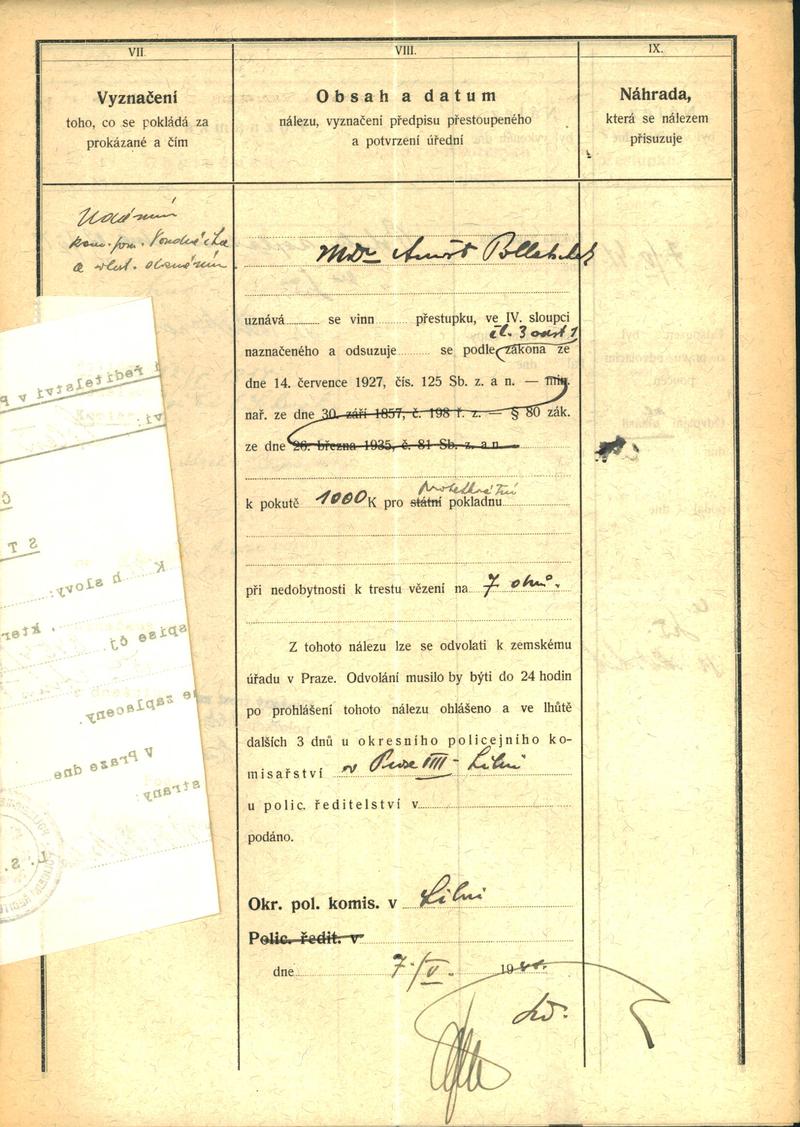 VII.
Vyznačení
toho, co se pokládá za
prokázané a čím
Udáním
a vlast. doznáním
VIII.
Obsah a datum
nálezu, vyznačení předpisu přestoupeného
a potvrzení úřední
MUDr Arnošt
uznává se vinn přestupku, ve IV. sloupci
čl. 3 odst 1
naznačeného a odsuzuje se podle zákona ze
dne 14. července 1927, čís. 125 Sb. z. a n. — min.
nař. ze dne 30. září 1857, č. 198 ř. z. — § 80 zák.
ze dne 26. března 1935, č. 81 Sb. z. a n.
protektorátní
k pokutě 1000 K pro státní pokladnu
při nedobytnosti k trestu vězení na 7 dnů.
Z tohoto nálezu lze se odvolati k zemskému
úřadu v Praze. Odvolání musilo by býti do 24 hodin
po prohlášení tohoto nálezu ohlášeno a ve lhůtě
dalších 3 dnů u okresního policejního ko-
misařství v Praze VIII - Libni
u polic. ředitelství v
podáno.
Okr. pol. komis. v Libni
Polic. ředit. v
dne 7./V. 19
IX.
Náhrada,
která se nálezem
přisuzuje
ředitelství v P
vi:
Č
S T
K h slovy:
spise čj. , kter
ne zaplaceny.
V Praze dne
strany:
L. S.